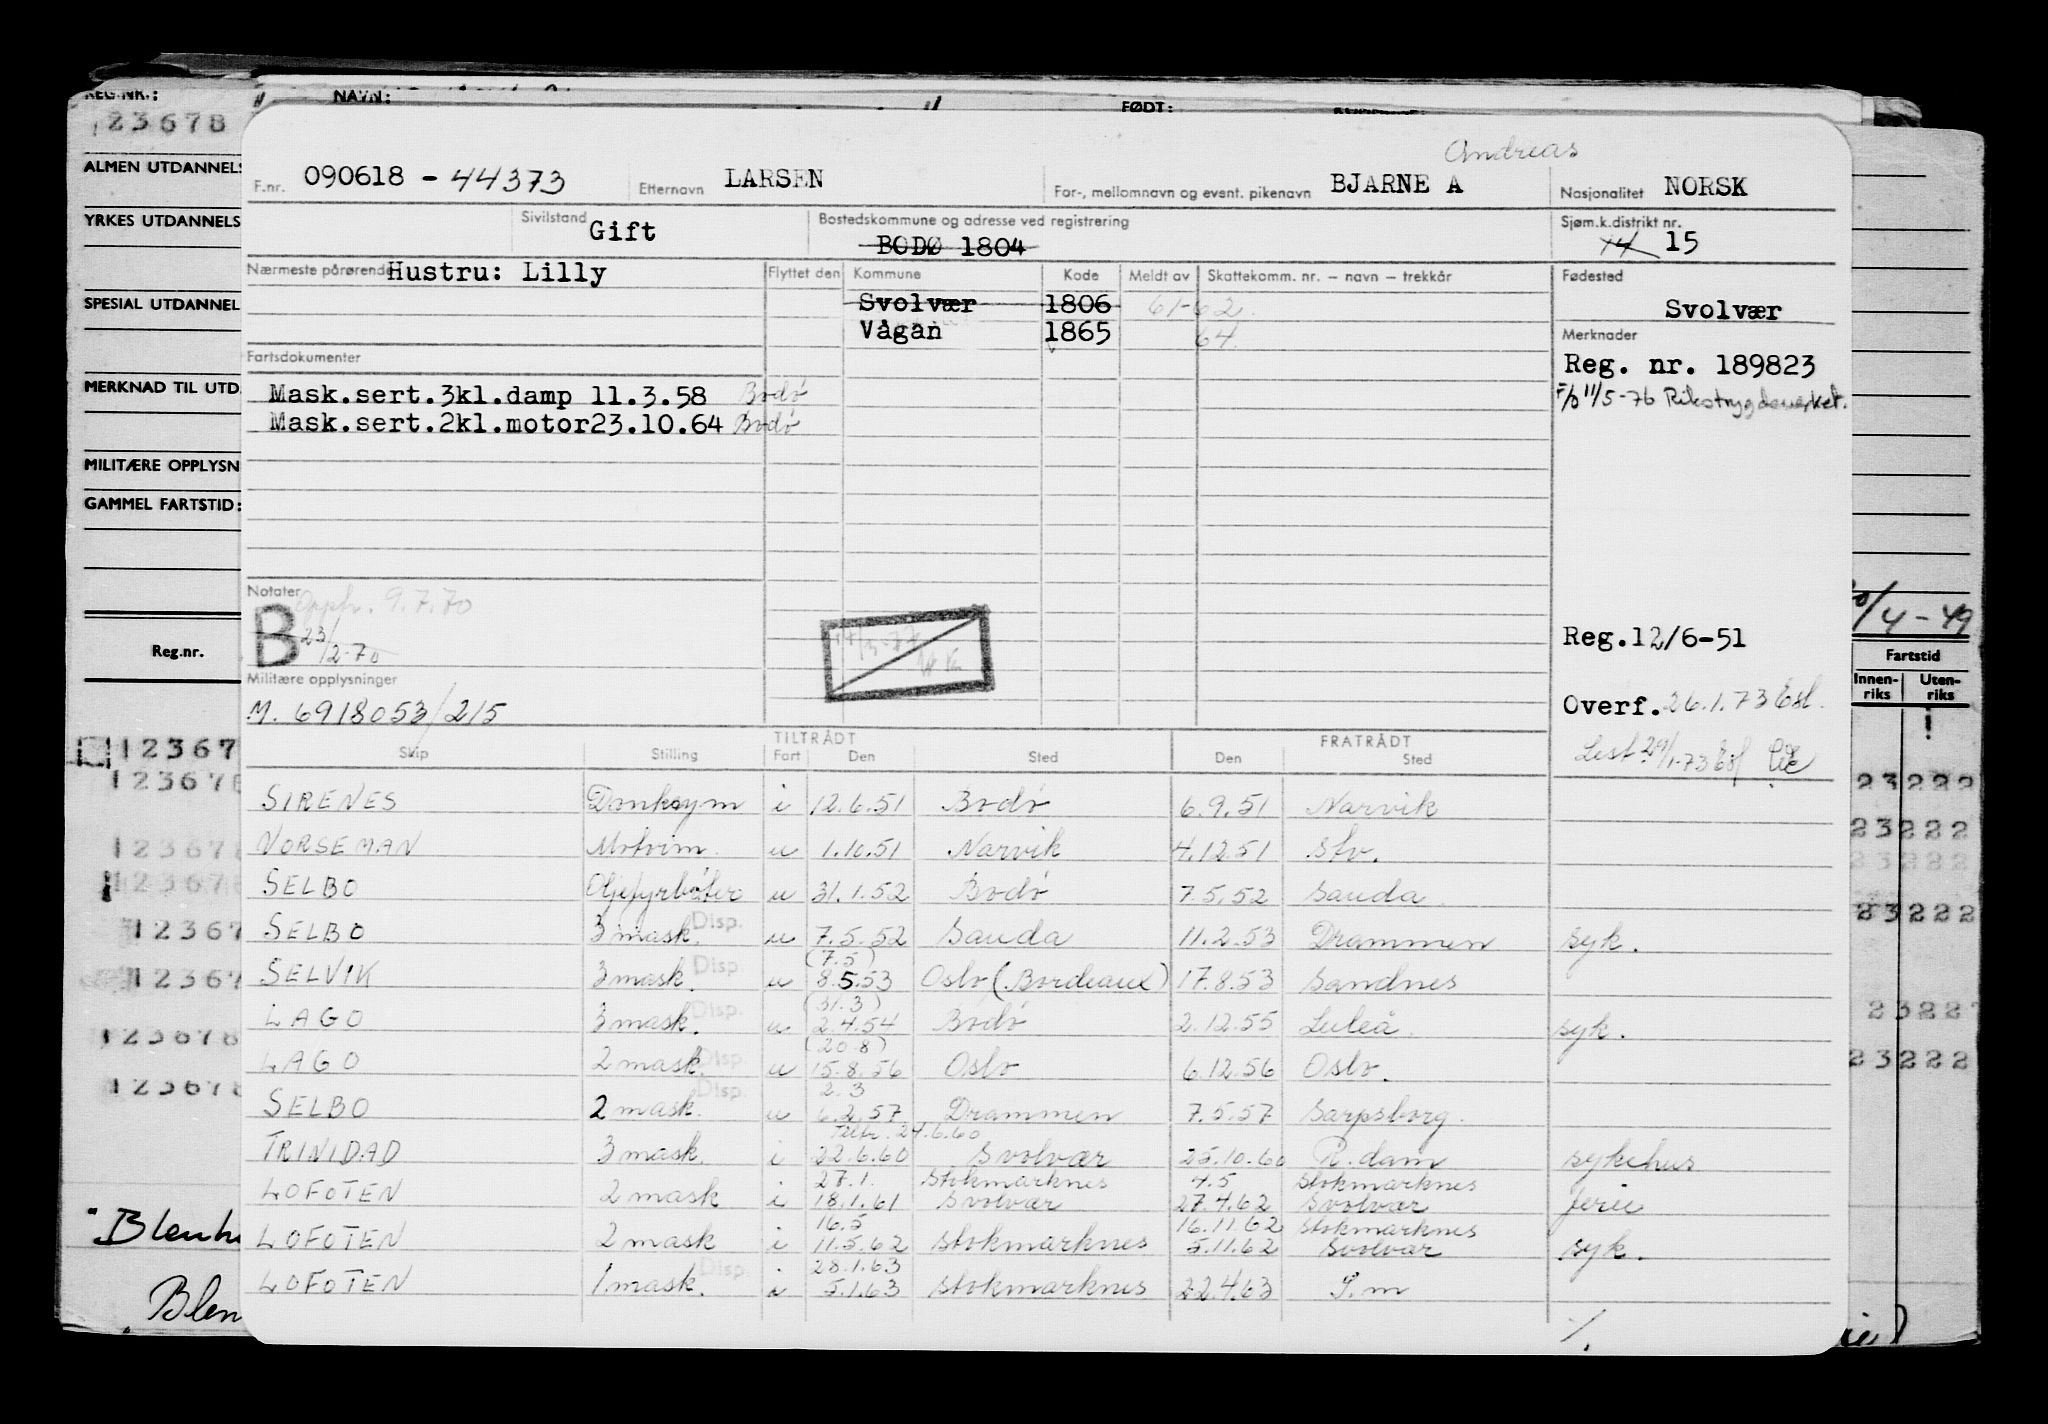 REG.NR.: NAVN: FØDT:
123678
ALMEN UTDANNELS
YRKES UTDANNELS
SPESIAL UTDANNEL
MERKNAD TIL UTD.
MILITÆRE OPPLYSN
GAMMEL FARTSTID:
Reg.nr.
Andreas
F.nr. 090618 - 44373 Etternavn LARSEN For-, mellomnavn og event. pikenavn BJARNE A Nasjonalitet NORSK
Sivilstand Gift Bostedskommune og adresse ved registrering BODØ 1804 Sjøm.k.distrikt nr. 14 15
Nærmeste pårørende Hustru: Lilly Flyttet den Kommune Kode Meldt av Skattekomm. nr. – navn – trekkår Fødested
Svolvær 1806 61-62 Svolvær
Vågan 1865 64 Merknader
Fartsdokumenter Reg. nr. 189823
Mask.sert.3kl.damp 11.3.58 Bodø F/O 11/5-76 Rikstrygdeverket.
Mask.sert.2kl.motor23.10.64 Bodø
Notater Opph. 9.7.70
B 23/2-70
Reg.12/6-51
Militære opplysninger
M. 6918053/215
Overf. 26.1.73
4-49
Fartstid
Innen-riks Uten-riks
TILTRÅDT FRATRÅDT
Skip Stilling Fart Den Sted Den Sted
SIRENES Donkeym i 12.6.51 Bodø 6.9.51 Narvik
NORSEMAN Motorm. u 1.10.51 Narvik 4.12.51 Stv.
SELBO Oljefyrbøter u 31.1.52 Bodø 7.5.52 Sauda
SELBO 3 mask. Disp. u 7.5.52 Sauda 11.2.53 Drammen syk.
(7.5)
SELVIK 3 mask. Disp. u 8.5.53 Oslo (Bordeaux) 17.8.53 Sandnes
(31.3)
LAGO 3 mask. Disp. u 2.4.54 Bodø 2.12.55 Luleå. syk.
(20.8)
LAGO 2 mask. Disp. u 15.8.56 Oslo 6.12.56 Oslo.
2.3
SELBO 2 mask. Disp. u 6.2.57 Drammen 7.5.57 Sarpsborg.
Tiltr. 24.6.60
TRINIDAD 3 mask. i 22.6.60 Svolvær 25.10.60 R.dam sykehus
27.1. Stokmarknes 4.5 Stokmarknes
LOFOTEN 2 mask i 18.1.61 Svolvær 27.4.62 Svolvær ferie
16.5 16.11.62 Stokmarknes
LOFOTEN 2 mask i 11.5.62 Stokmarknes 5.11.62 Svolvær syk.
28.1.63
LOFOTEN 1 mask. Disp. i 5.1.63 Stokmarknes 22.4.63 S.m
"Blenh
Blen